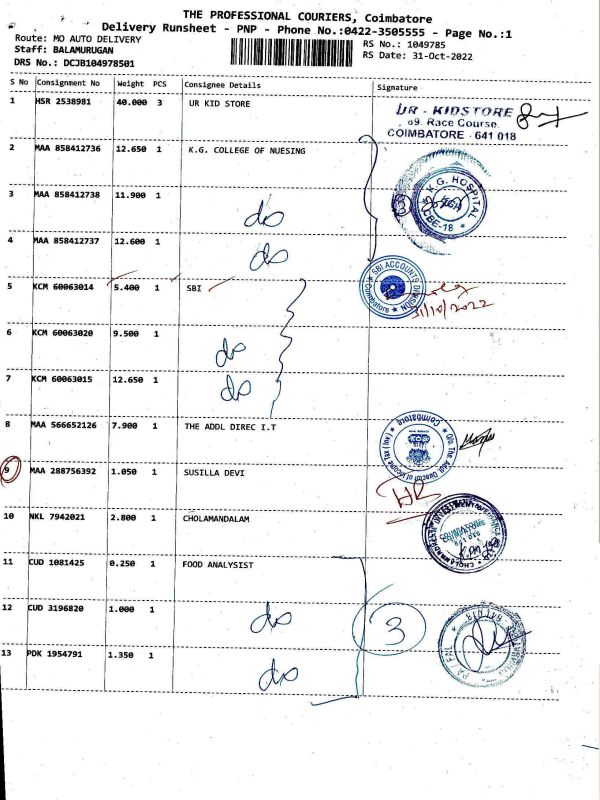 THE PROFESSIONAL COURIERS, Coimbatore
Delivery Runsheet - PNP - Phone No.:0422-3505555 - Page No.:1
Route: MO AUTO DELIVERY
RS No.: 1049785
Staff: BALAMURUGAN
RS Date: 31-Oct-2022
DRS No.: DCJB104978501
S No Consignment No Weight PCS Consignee Details Signature
1 HSR 2538981 40.000 3 UR KID STORE
UR - KIDSTORE
69. Race Course.
COIMBATORE - 641 018
2 MAA 858412736 12.650 1 K.G. COLLEGE OF NUESING
K.G. HOSPITAL
CBE-18
3 MAA 858412738 11.900 1 do
4 MAA 858412737 12.600 1 do
5 KCM 60063014 5.400 1 SBI
SBI ACCOUNTS DIVISION
Coimbatore
31/10/2022
6 KCM 60063020 9.500 1 do
7 KCM 60063015 12.650 1 do
8 MAA 566652126 7.900 1 THE ADDL DIREC I.T
O/o. The Addl. Director of Income Tax (Inv.)
Coimbatore
9 MAA 288756392 1.050 1 SUSILLA DEVI
10 NKL 7942021 2.800 1 CHOLAMANDALAM
11 CUD 1081425 0.250 1 FOOD ANALYSIST
12 CUD 3196820 1.000 1 do
3
13 PDK 1954791 1.350 1 do